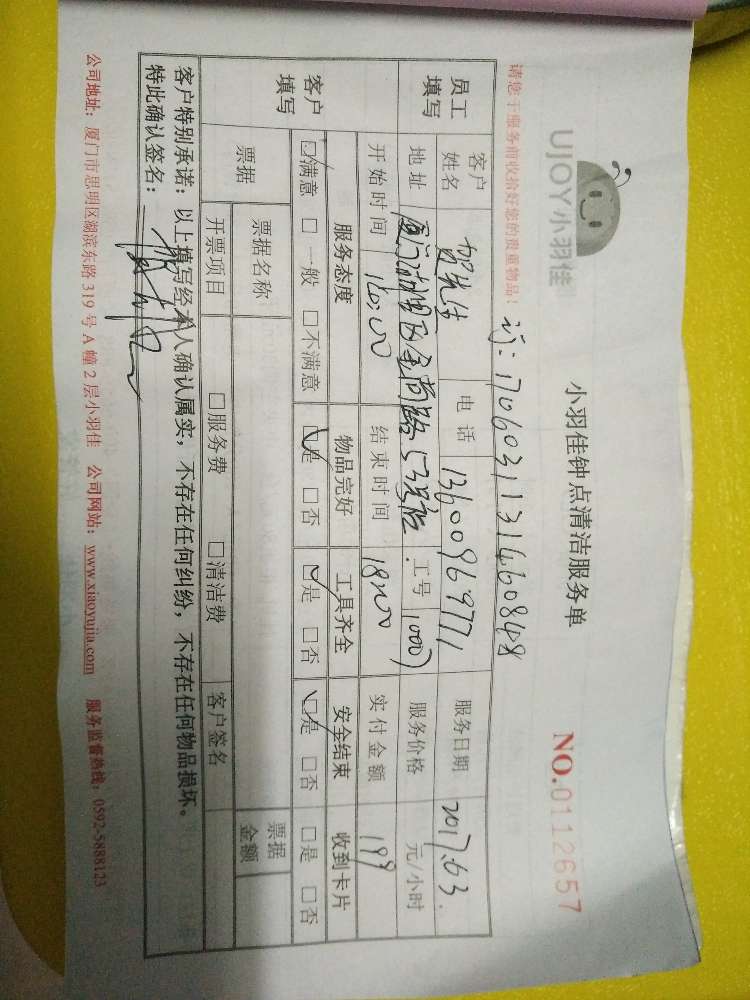 UJOY小羽佳
小羽佳钟点清洁服务单
NO.0112657
请您于服务前收拾好您的贵重物品！
订：1706031131460848
员工填写 客户姓名 贺先生 电话 13600969771 服务日期 2017.6.3.
地址 厦门湖里区金尚路53号 工号 1007 服务价格 元/小时
开始时间 16:00 结束时间 18:00 实付金额 199
客户填写 服务态度 物品完好 工具齐全 安全结束 收到卡片
☑满意 □一般 □不满意 ☑是 □否 ☑是 □否 ☑是 □否 □是 □否
票据 票据名称 票据金额
开票项目 □服务费 □清洁费 客户签名
客户特别承诺：以上填写经本人确认属实，不存在任何纠纷，不存在任何物品损坏。
特此确认签名：
公司地址：厦门市思明区湖滨东路 319 号 A 幢 2 层小羽佳 公司网站：www.xiaoyujia.com 服务监督热线：0592-5888123